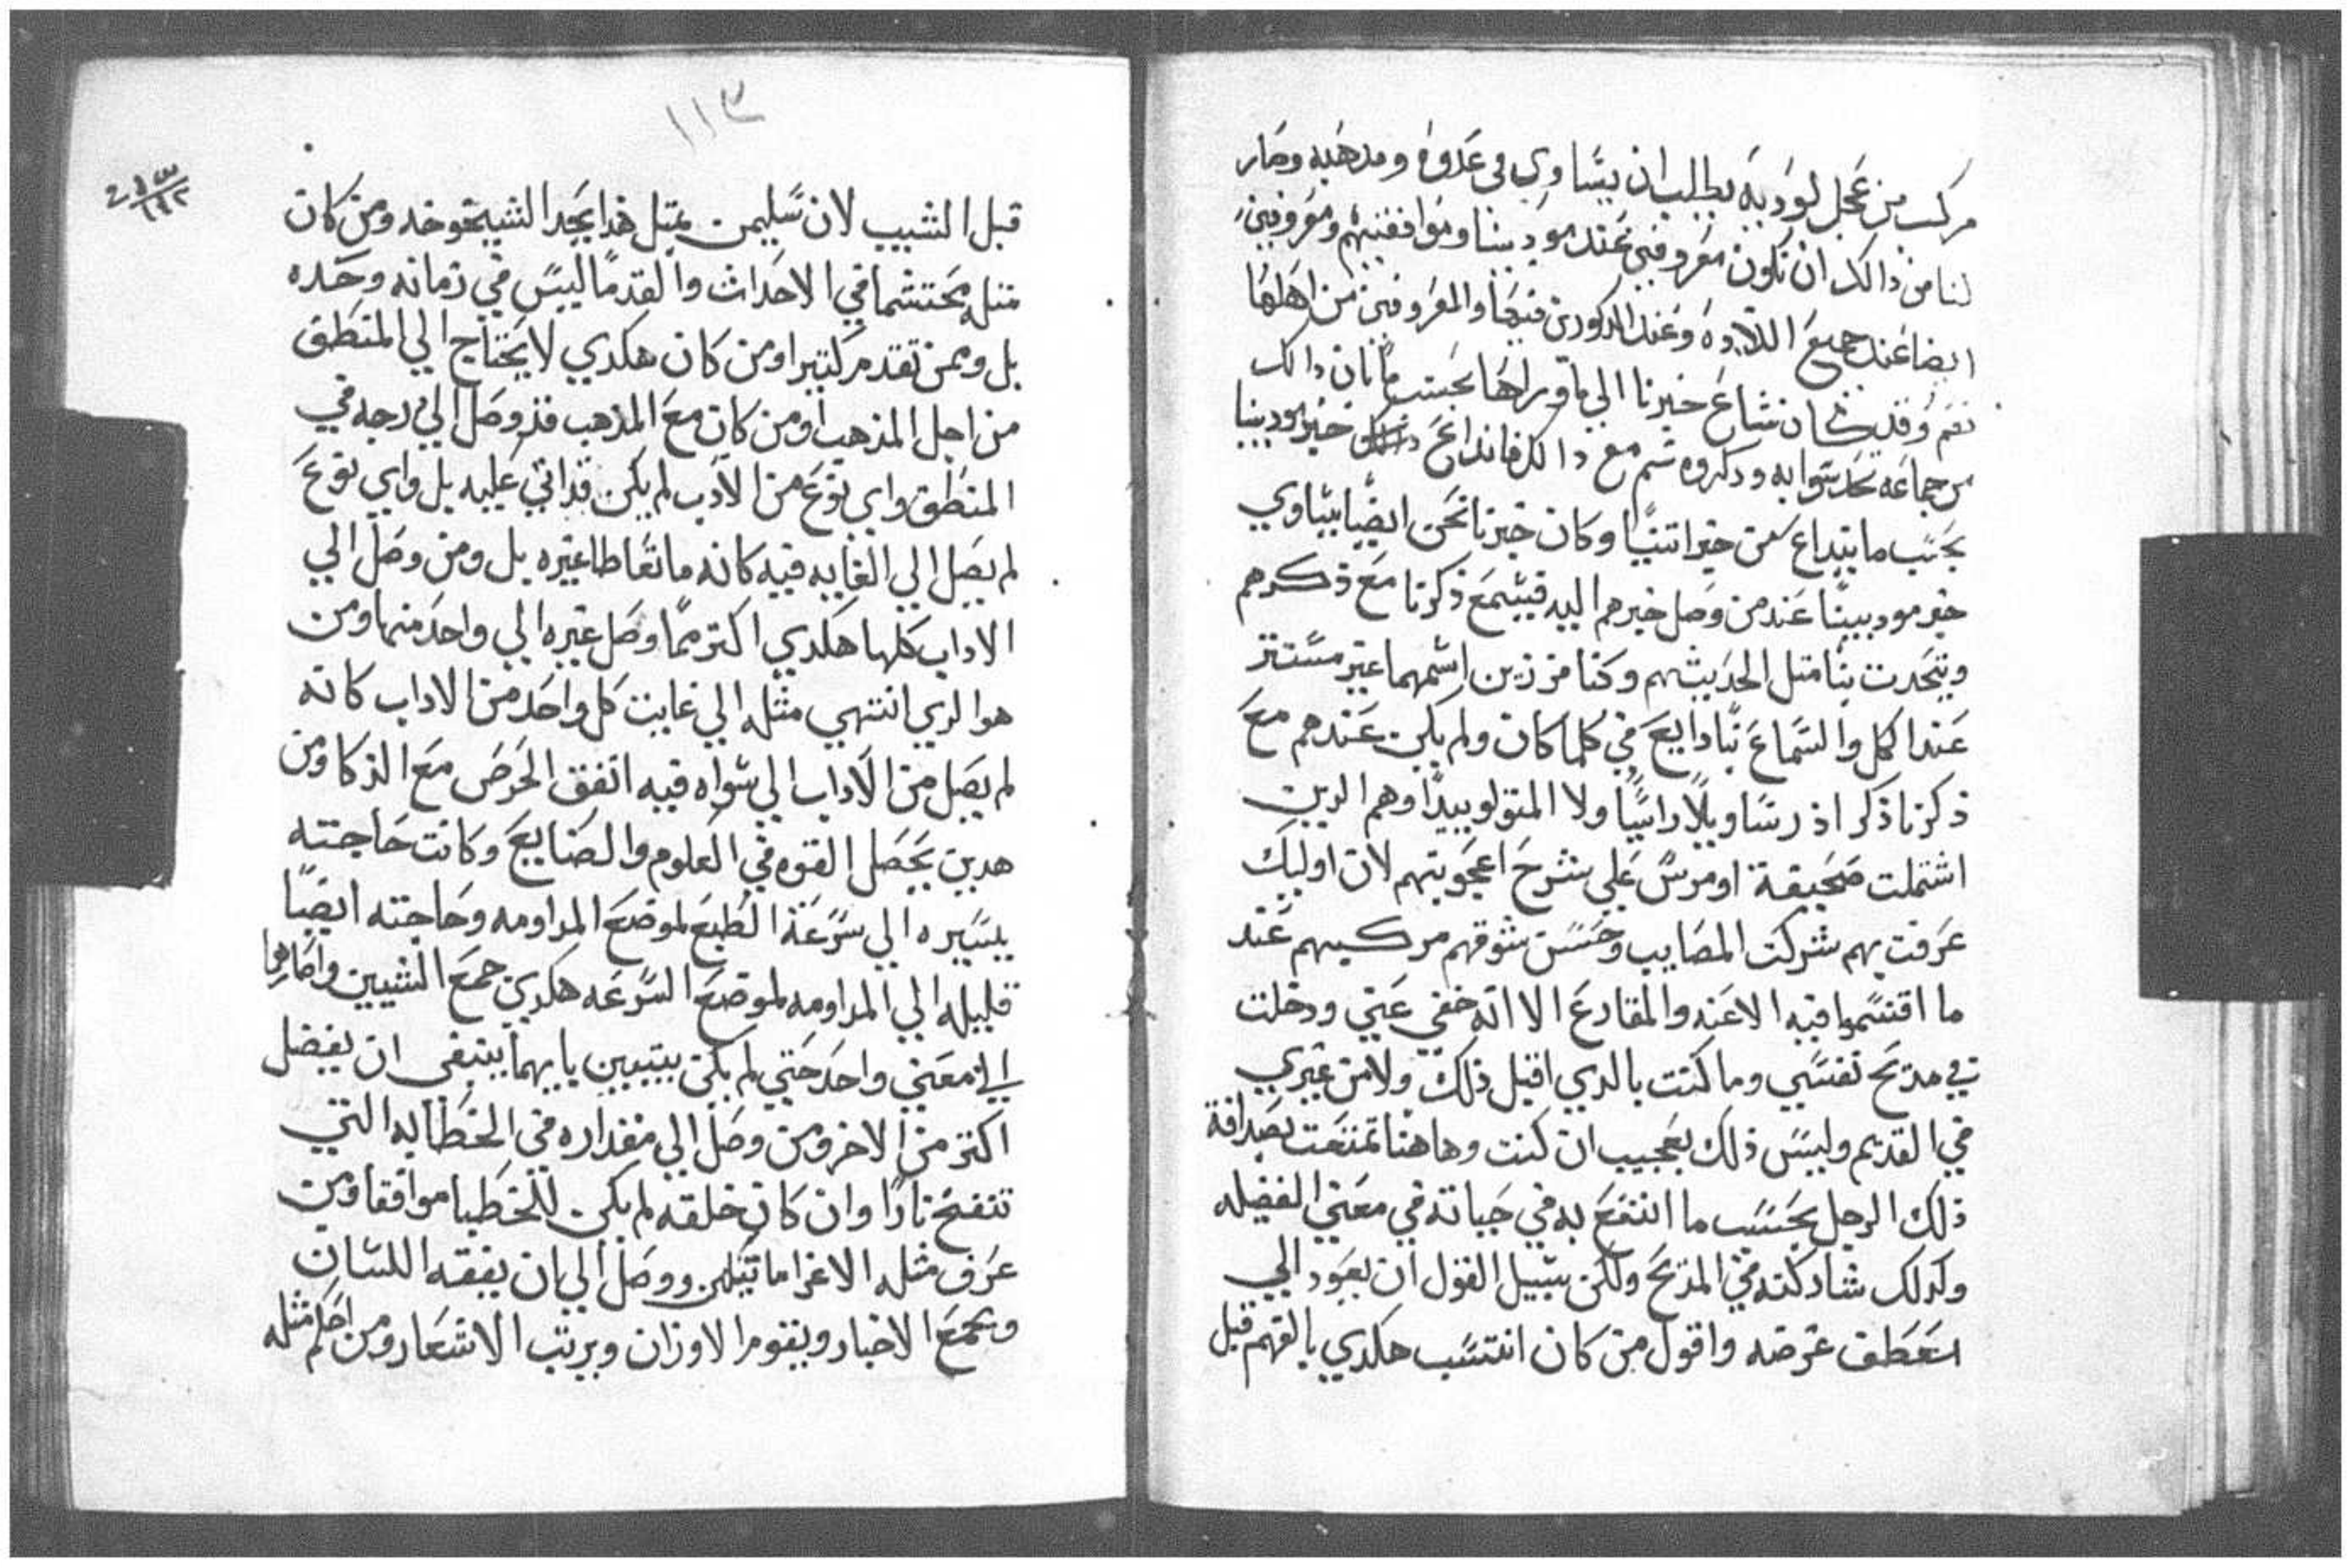 مركب من عجل لوديه يطلب ان يساوي في عدوه ومدهبه وصار
لنا من دالك ان نكون معروفين عند موديينا وموافقينهم ومعروفين
ايضا عند جميع اللادة وعند الدكورين فيها والمعروفين من اهلها
نعم وقد كان شاع خبرنا الي ما وراها بحسب ما بان دالك
من جماعه تحدثوا به ودكروه ثم مع دالك فانداع خبر مودينا
بحسب ما ينداع عن خبر اتنيا وكان خبرنا نحن ايضا يساوي
خبر موديينا عند من وصل خبرهم اليه فيسمع ذكرنا مع ذكرهم
ويتحدت بنا متل الحديثهم وكنا مززين اسمهما غير مستتر
عند الكل والسماع بنا دايع في كلما كان ولم يكن عندهم مع
ذكرنا ذكر اذرسا وبلاراسا ولا المتولوبيدا وهم الدين
اشتملت صحيفة اومرس علي شرح اعجوبتهم لان اوليك
عرفت بهم شركت المصايب وحسن شوقهم مركبهم عند
ما اقتسموا فيه الاعنه والمقارع الا انه خفي عني ودخلت
في مديح نفسي وما كنت بالدي اقبل ذلك ولا من غيري
في القديم وليس ذلك بعجيب ان كنت وهاهنا تمتعت بصداقة
ذلك الرجل بحسب ما انتفع به في حياته في معني الفضيله
وكدلك شاركته في المديح ولكن سبيل القول ان يعود الي
اسعطف غرضه واقول من كان انتسب هكدي بالفهم قبل
١١٣
قبل الشبيب لان سليمن بمتل هذا يحد الشيخوخه ومن كان
متله محتشما في الاحداث والقدما ليس في زمانه وحده
بل وممن تقدم كتيرا ومن كان هكدي لا يحتاج الي المنطق
من اجل المذهب او من كان مع المذهب قد وصل الي درجه في
المنطق واي نوع من الادب لم يكن قد اتي عليه بل واي نوع
لم يصل الي الغايه فيه كانه ما تعاطا غيره بل ومن وصل الي
الاداب كلها هكدي اكتر مما وصل غيره الي واحد منها ومن
هو الدي انتهي مثله الي غايت كل واحد من الاداب كانه
لم يصل من الاداب الي سواه فيه اتفق الحرص مع الذكا ومن
هدين يحصل القوه في العلوم والصنايع وكانت حاجته
يسيره الي سرعة الطبع لموضع المداومه وحاجته ايضا
قليله الي المداومه لموضع السرعه هكدي جمع الشيين واصارهما
الي معني واحد حتي لم يكن يتبين بايهما ينبغي ان يفضل
اكتر من الاخر ومن وصل الي مقداره في الخطابه التي
تنفح نارا وان كان خلقه لم يكن للخطبا موافقا ومن
عرف مثله الاغراماتيلهن ووصل الي ان يفقه اللسان
ويجمع الاخبار ويقوم الاوزان ويرتب الاشعار ومن احكم مثله